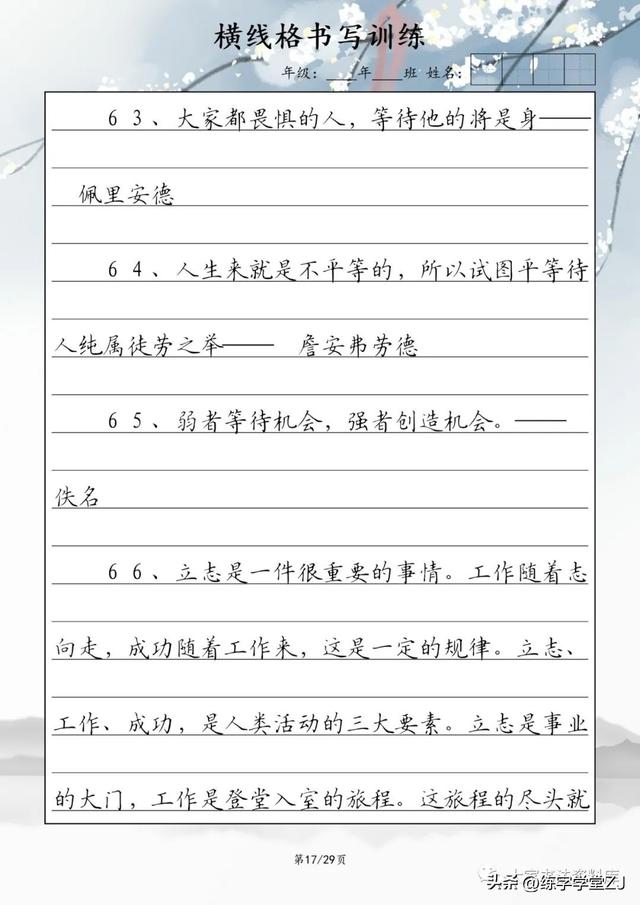 横线格书写训练
年级：____年____班 姓名：
63、大家都畏惧的人，等待他的将是身——
佩里安德
64、人生来就是不平等的，所以试图平等待
人纯属徒劳之举—— 詹安弗劳德
65、弱者等待机会，强者创造机会。——
佚名
66、立志是一件很重要的事情。工作随着志
向走，成功随着工作来，这是一定的规律。立志、
工作、成功，是人类活动的三大要素。立志是事业
的大门，工作是登堂入室的旅程。这旅程的尽头就
第17/29页
头条@练字学堂ZJ